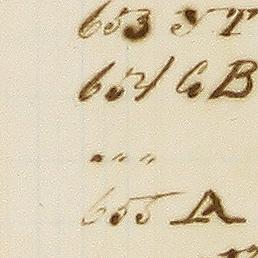 653 T
654 G B
" " "
655 A